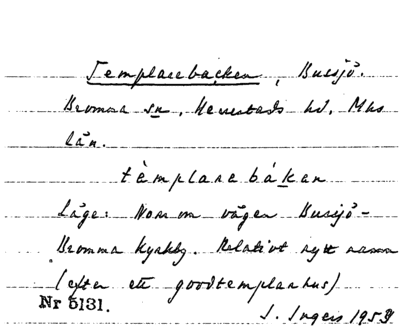 Templarebacken, Bussjö.
Bromma sn, Herrestads hd, Mhs
län.
tèmplarebákan
Läge: Norr om vägen Bussjö-
Bromma kyrkby. Relativt nytt namn
(efter ett goodtemplarhus)
Nr 5131.
J. Ingers 1953